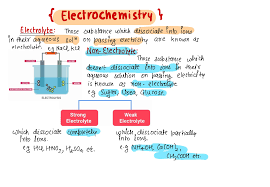 { Electrochemistry }
Electrolyte: Those substance which dissociate into ions
in their aqueous solⁿ on passing electricity are known as
electrolyte. eg NaCl, KCl
Non-Electrolyte:
Those substance which
doesn't dissociate into ions in their
aqueous solution on passing electricity
is known as non-electrolyte
eg Sugar, Urea, Glucose.
Strong
Electrolyte
Weak
Electrolyte
which dissociate completely
into ions.
eg HCl, HNO₃, H₂SO₄ etc.
which dissociate partially
into ions.
eg NH₄OH, Ca(OH)₂,
CH₃COOH etc.